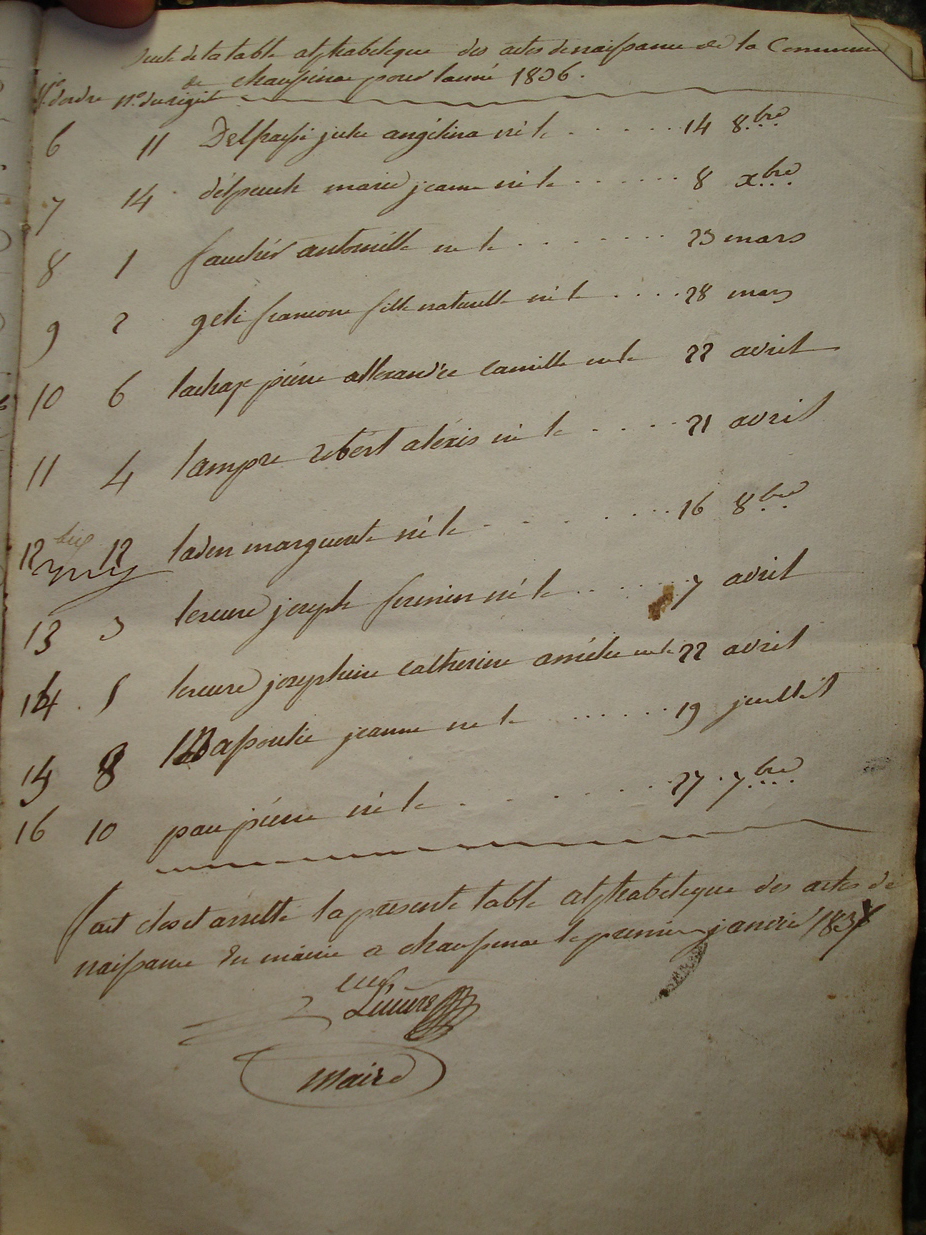 Suite de la table alphabetique des actes de naissance de la Commune
de chaussenac pour lanné 1836.
N.o d'ordre N.o du regist
6 11 Delpasse julie angélina né le 14 8.bre
7 14 delpeuch marie jeanne né le 8 xbre
8 1 fauchér antoinette né le 23 mars
9 2 geli francoise fille naturelle né le 28 mars
10 6 lachaze piérre allexandre camille né le 22 avril
11 4 lampre robert aléxis né le 21 avril
12 bis 12 laden marguerite né le 16 8.bre
13 3 lescure joseph firmin né le 7 avril
14 5 lescure josephine catherine amélie né le 22 avril
15 8 jeanne né le 19 juillet
16 10 pau piérre né le 27 7.bre
fait clos et arretté la présente table alphabetique des actes de
naissance En mairie a chaussenac le premier janvier 1837
Maire